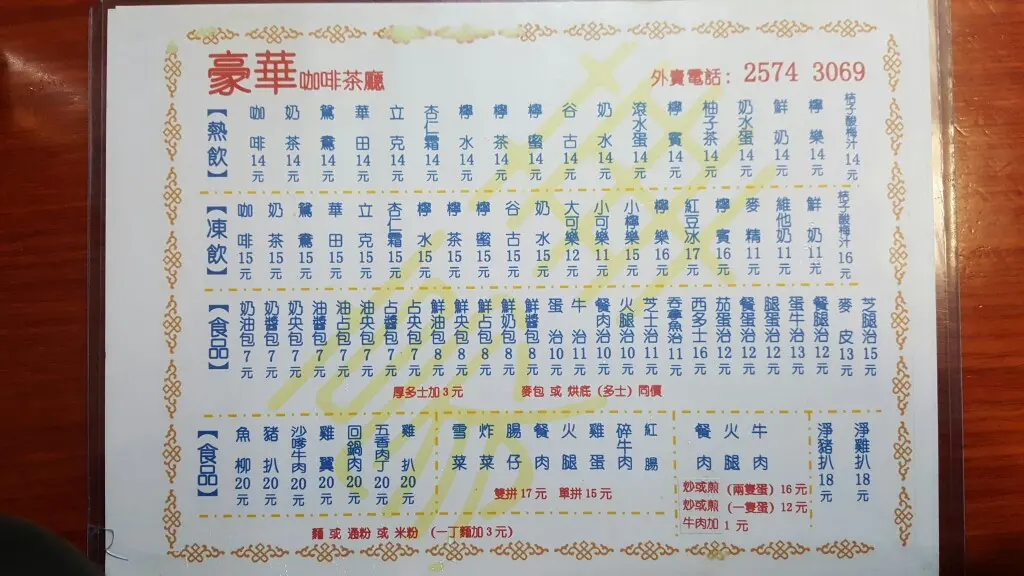 豪華咖啡茶廳
外賣電話：2574 3069
【熱飲】
咖啡14元
奶茶14元
鴛鴦14元
華田14元
立克14元
杏仁霜14元
檸水14元
檸茶14元
檸蜜14元
谷古14元
奶水14元
滾水蛋14元
檸賓14元
柚子茶14元
奶水蛋14元
鮮奶14元
檸樂14元
桔子酸梅汁14元
【凍飲】
咖啡15元
奶茶15元
鴛鴦15元
華田15元
立克15元
杏仁霜15元
檸水15元
檸茶15元
檸蜜15元
谷古15元
奶水15元
大可樂12元
小可樂11元
小檸樂15元
檸樂16元
紅豆冰17元
檸賓16元
麥精11元
維他奶11元
鮮奶11元
桔子酸梅汁16元
【食品】
奶油包7元
奶醬包7元
奶央包7元
油醬包7元
油占包7元
油央包7元
占醬包7元
占央包7元
鮮油包8元
鮮央包8元
鮮占包8元
鮮奶包8元
鮮醬包8元
蛋治10元
牛治11元
餐肉治10元
火腿治10元
芝士治11元
吞拿魚治11元
西多士16元
茄蛋治12元
餐蛋治12元
腿蛋治12元
蛋牛治13元
餐腿治12元
麥皮13元
芝腿治15元
厚多士加3元
麥包 或 烘底（多士）同價
【食品】
魚柳20元
豬扒20元
沙嗲牛肉20元
雞翼20元
回鍋肉20元
五香肉丁20元
雞扒20元
雪菜
炸菜
腸仔
餐肉
火腿
雞蛋
碎牛肉
紅腸
雙拼17元 單拼15元
餐肉
火腿
牛肉
炒或煎（兩隻蛋）16元
炒或煎（一隻蛋）12元
牛肉加 1 元
淨豬扒18元
淨雞扒18元
麵 或 通粉 或 米粉 （一丁麵加3元）